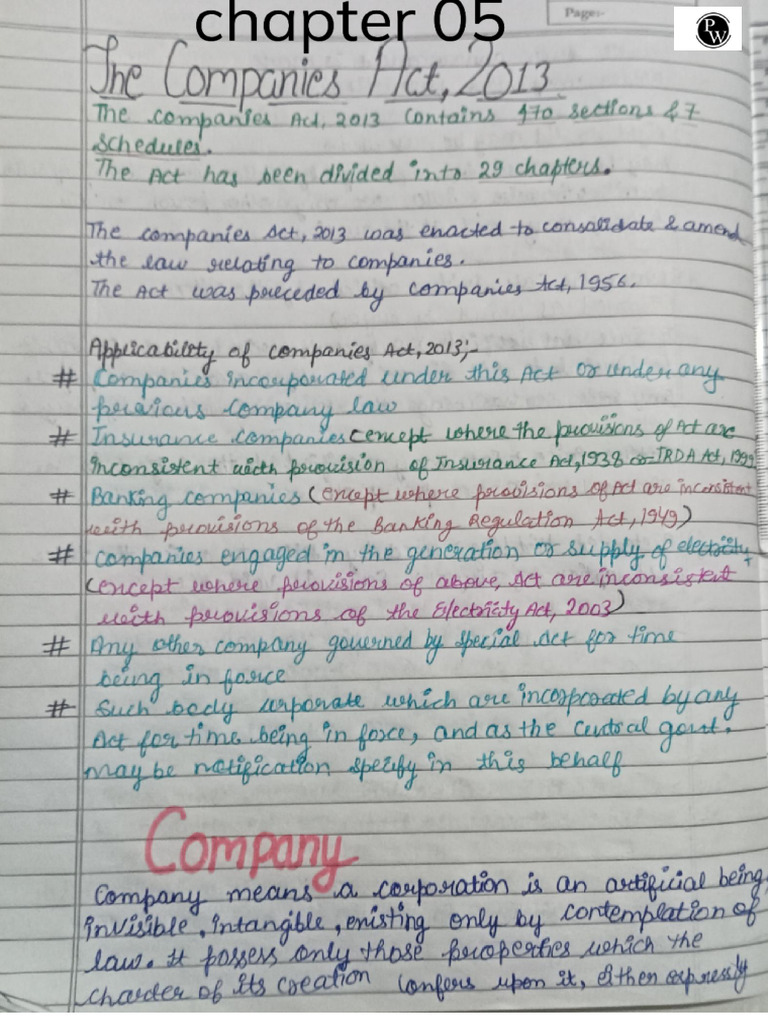 chapter 05
Page:-
PW
The Companies Act, 2013
The companies Act, 2013 contains 470 sections & 7
schedules.
The Act has been divided into 29 chapters.
The companies Act, 2013 was enacted to consolidate & amend
the law relating to companies.
The Act was preceded by companies Act, 1956.
Applicability of companies Act, 2013;-
# Companies incorporated under this Act or under any
previous company law
# Insurance companies (except where the provisions of Act are
inconsistent with provision of Insurance Act, 1938 or IRDA Act, 1999
# Banking companies (except where provisions of Act are inconsistent
with provisions of the Banking Regulation Act, 1949)
# companies engaged in the generation or supply of electricity
(except where provisions of above, Act are inconsistent
with provisions of the Electricity Act, 2003)
# Any other company governed by special Act for time
being in force
# Such body corporate which are incorporated by any
Act for time being in force, and as the Central govt.
may be notification specify in this behalf
Company
Company means a corporation is an artificial being,
invisible, intangible, existing only by contemplation of
law. It possess only those properties which the
charder of its creation confers upon it, either expressly